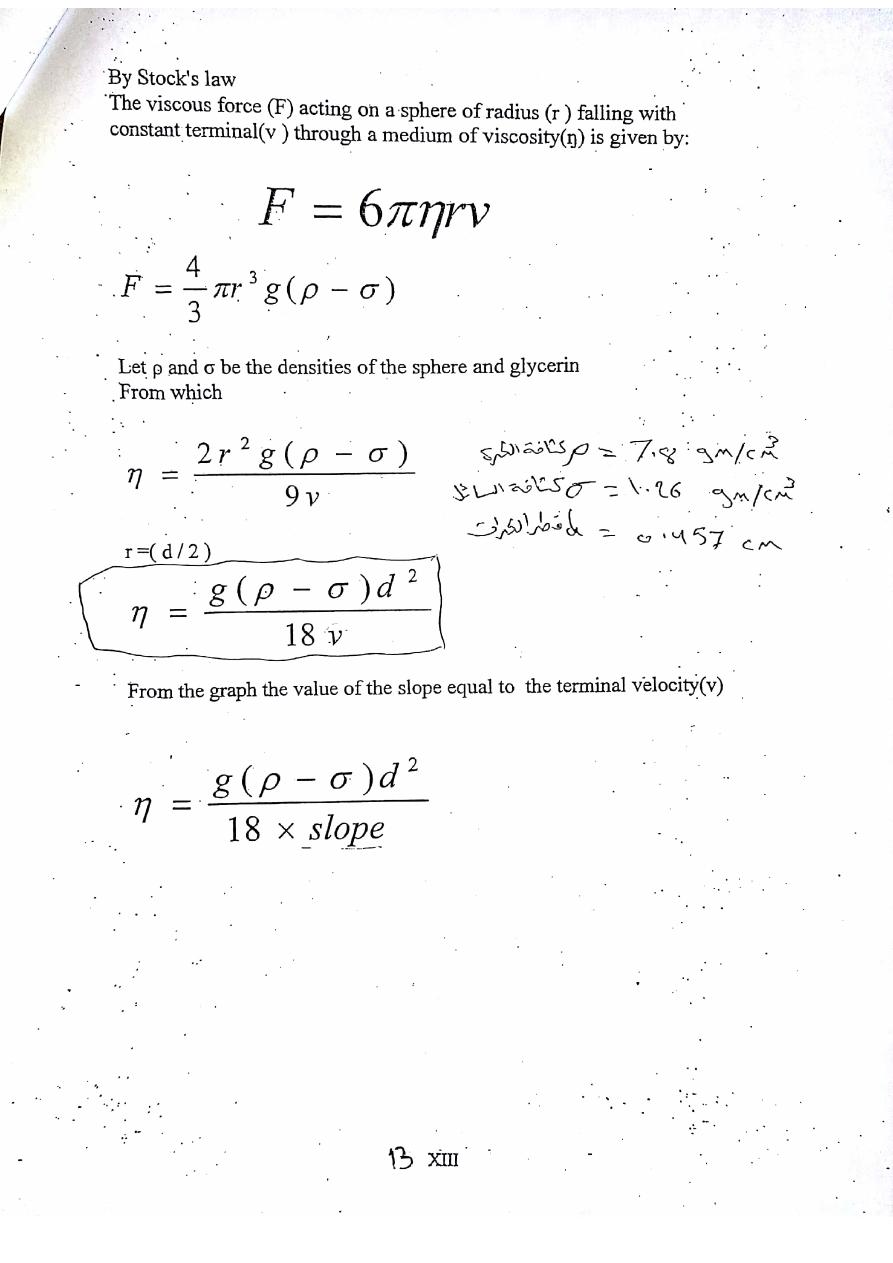 By Stock's law
The viscous force (F) acting on a sphere of radius (r ) falling with
constant terminal(v ) through a medium of viscosity(η) is given by:
F = 6πηrv
F = 4/3 πr³ g(ρ − σ)
Let ρ and σ be the densities of the sphere and glycerin
From which
η = 2r² g(ρ − σ) / 9v
كثافة الكرة ρ = 7.8 gm/cm³
كثافة السائل σ = 1.26 gm/cm³
قطر الكرات = cm
r=(d/2)
η = g(ρ − σ)d² / 18 v
From the graph the value of the slope equal to the terminal velocity(v)
η = g(ρ − σ)d² / 18 × slope
13 XIII